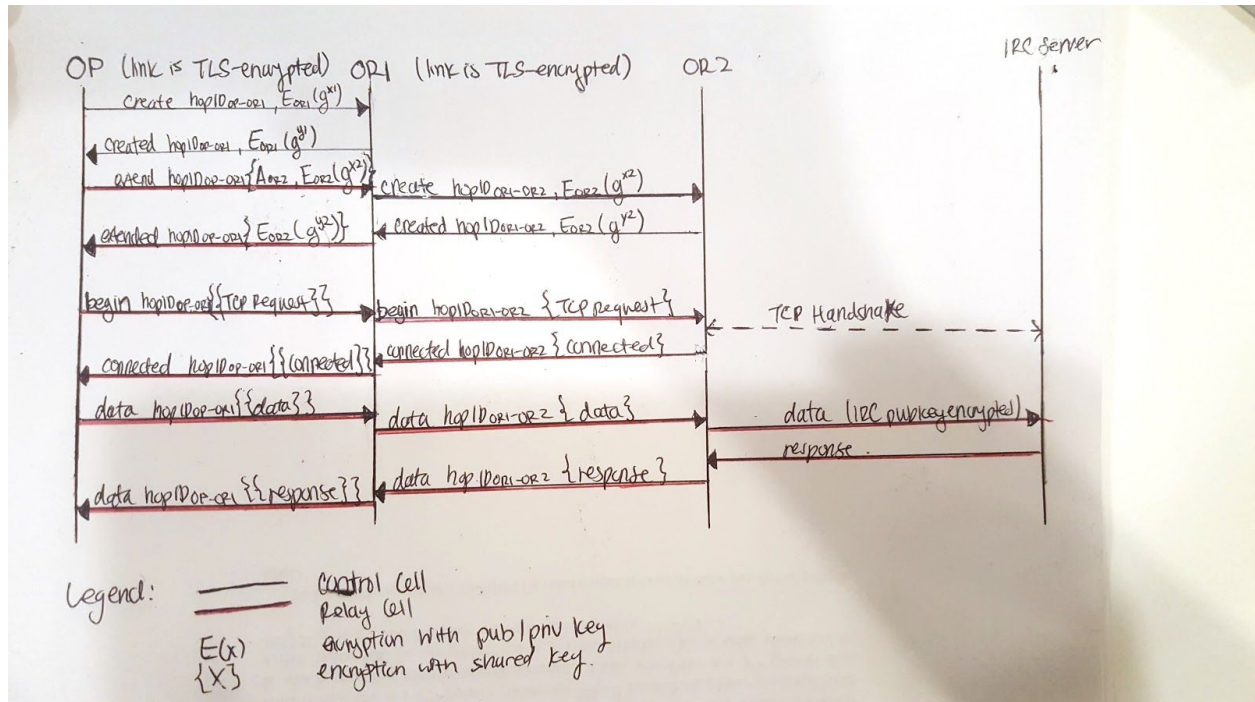 OP (link is TLS-encrypted) OR1 (link is TLS-encrypted) OR2 IRC Server
create hopID OP-OR1, E OR1 (g^x1)
created hopID OP-OR1, E OR1 (g^y1)
extend hopID OP-OR1 {A OR2, E OR2 (g^x2)}
create hopID OR1-OR2, E OR2 (g^x2)
extended hopID OP-OR1 {E OR2 (g^y2)}
created hopID OR1-OR2, E OR2 (g^y2)
begin hopID OP-OR1 {{TCP Request}}
begin hopID OR1-OR2 {TCP Request}
TCP Handshake
connected hopID OP-OR1 {{connected}}
connected hopID OR1-OR2 {connected}
data hopID OP-OR1 {{data}}
data hopID OR1-OR2 {data}
data (IRC pubkey encrypted)
response.
data hopID OP-OR1 {{response}}
data hopID OR1-OR2 {response}
Legend:
Control Cell
Relay Cell
E(x) encryption with pub/priv key
{X} encryption with shared key.